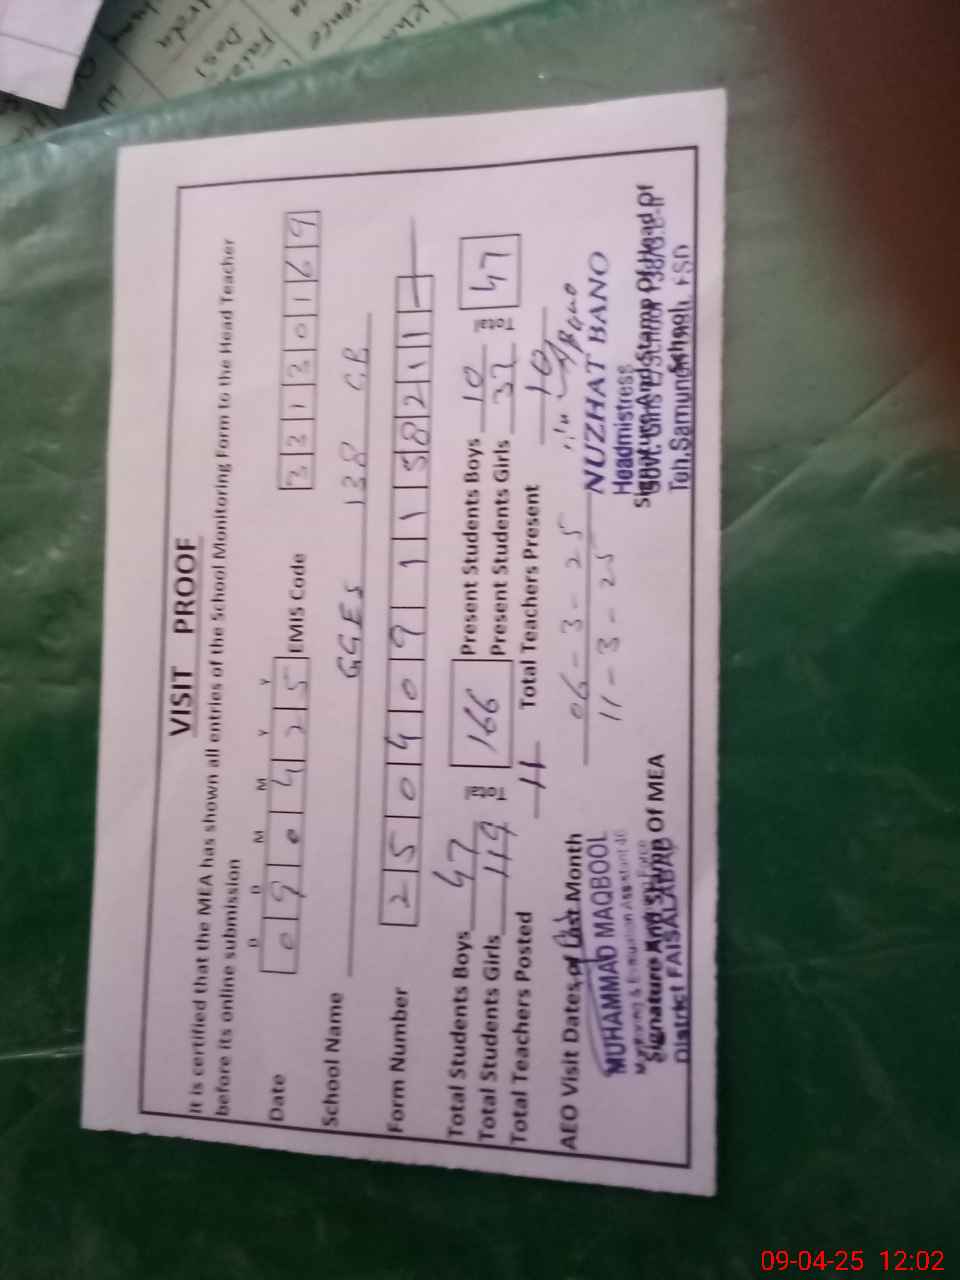 VISIT PROOF
It is certified that the MEA has shown all entries of the School Monitoring Form to the Head Teacher
before its online submission
D D M M Y Y
Date 0 9 0 4 2 5 EMIS Code 3 3 1 3 0 1 6 9
School Name GGES 138 GB
Form Number 2 5 0 4 0 9 1 1 5 8 2 1 1
Total Students Boys 47 Total 166 Present Students Boys 10 Total 47
Total Students Girls 119 Present Students Girls 37
Total Teachers Posted 11 Total Teachers Present 10
AEO Visit Dates of Last Month 06-3-25
11-3-25
MUHAMMAD MAQBOOL
Signature And Stamp Of MEA
District FAISALABAD
NUZHAT BANO
Headmistress
Signature And Stamp Of Head Of
School
Govt. Girls
Teh.Samundri FSD
09-04-25 12:02